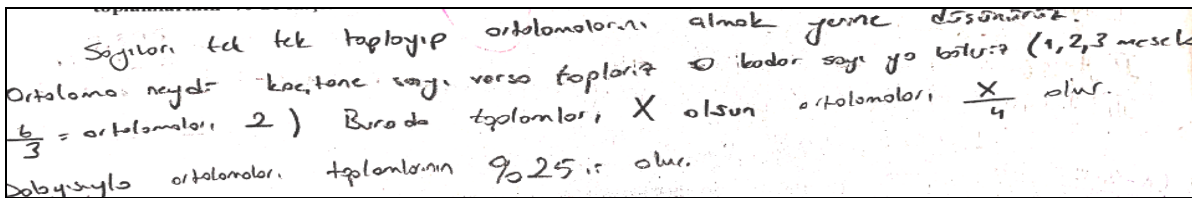 Sayıları tek tek toplayıp ortalamalarını almak yerine düşünürüz.
Ortalama neydi kaç tane sayı varsa toplarız o kadar sayı ya böleriz (1,2,3 mesela
6/3 = ortalamaları 2 ) Burada toplamları X olsun ortalamaları X/4 olur.
Dolayısıyla ortalamaları toplamlarının %25 i olur.